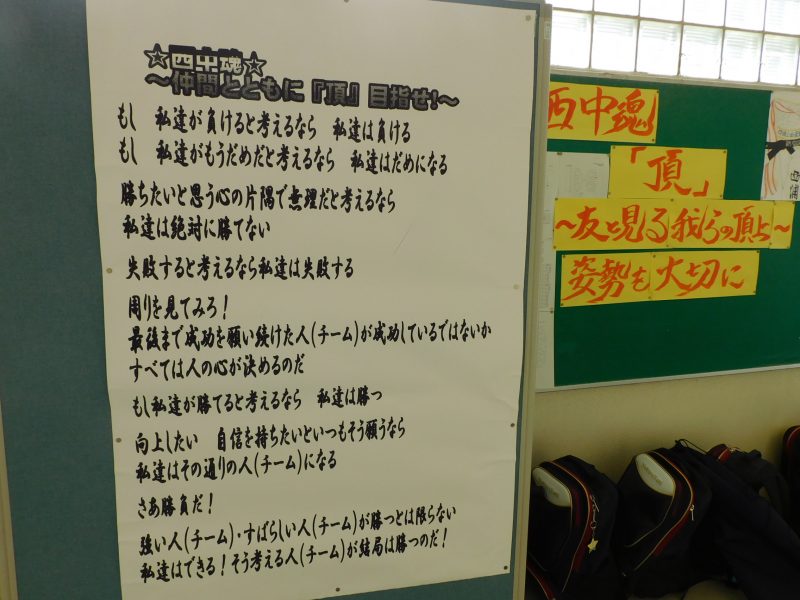 ☆西中魂☆
～仲間とともに『頂』目指せ!～
もし　私達が負けると考えるなら　私達は負ける
もし　私達がもうだめだと考えるなら　私達はだめになる
勝ちたいと思う心の片隅で無理だと考えるなら
私達は絶対に勝てない
失敗すると考えるなら私達は失敗する
周りを見てみろ！
最後まで成功を願い続けた人(チーム)が成功しているではないか
すべては人の心が決めるのだ
もし私達が勝てると考えるなら　私達は勝つ
向上したい　自信を持ちたいといつもそう願うなら
私達はその通りの人(チーム)になる
さあ勝負だ！
強い人(チーム)・すばらしい人(チーム)が勝つとは限らない
私達はできる！そう考える人(チーム)が結局は勝つのだ！
西中魂
「頂」
～友と見る我らの頂上～
姿勢を大切に